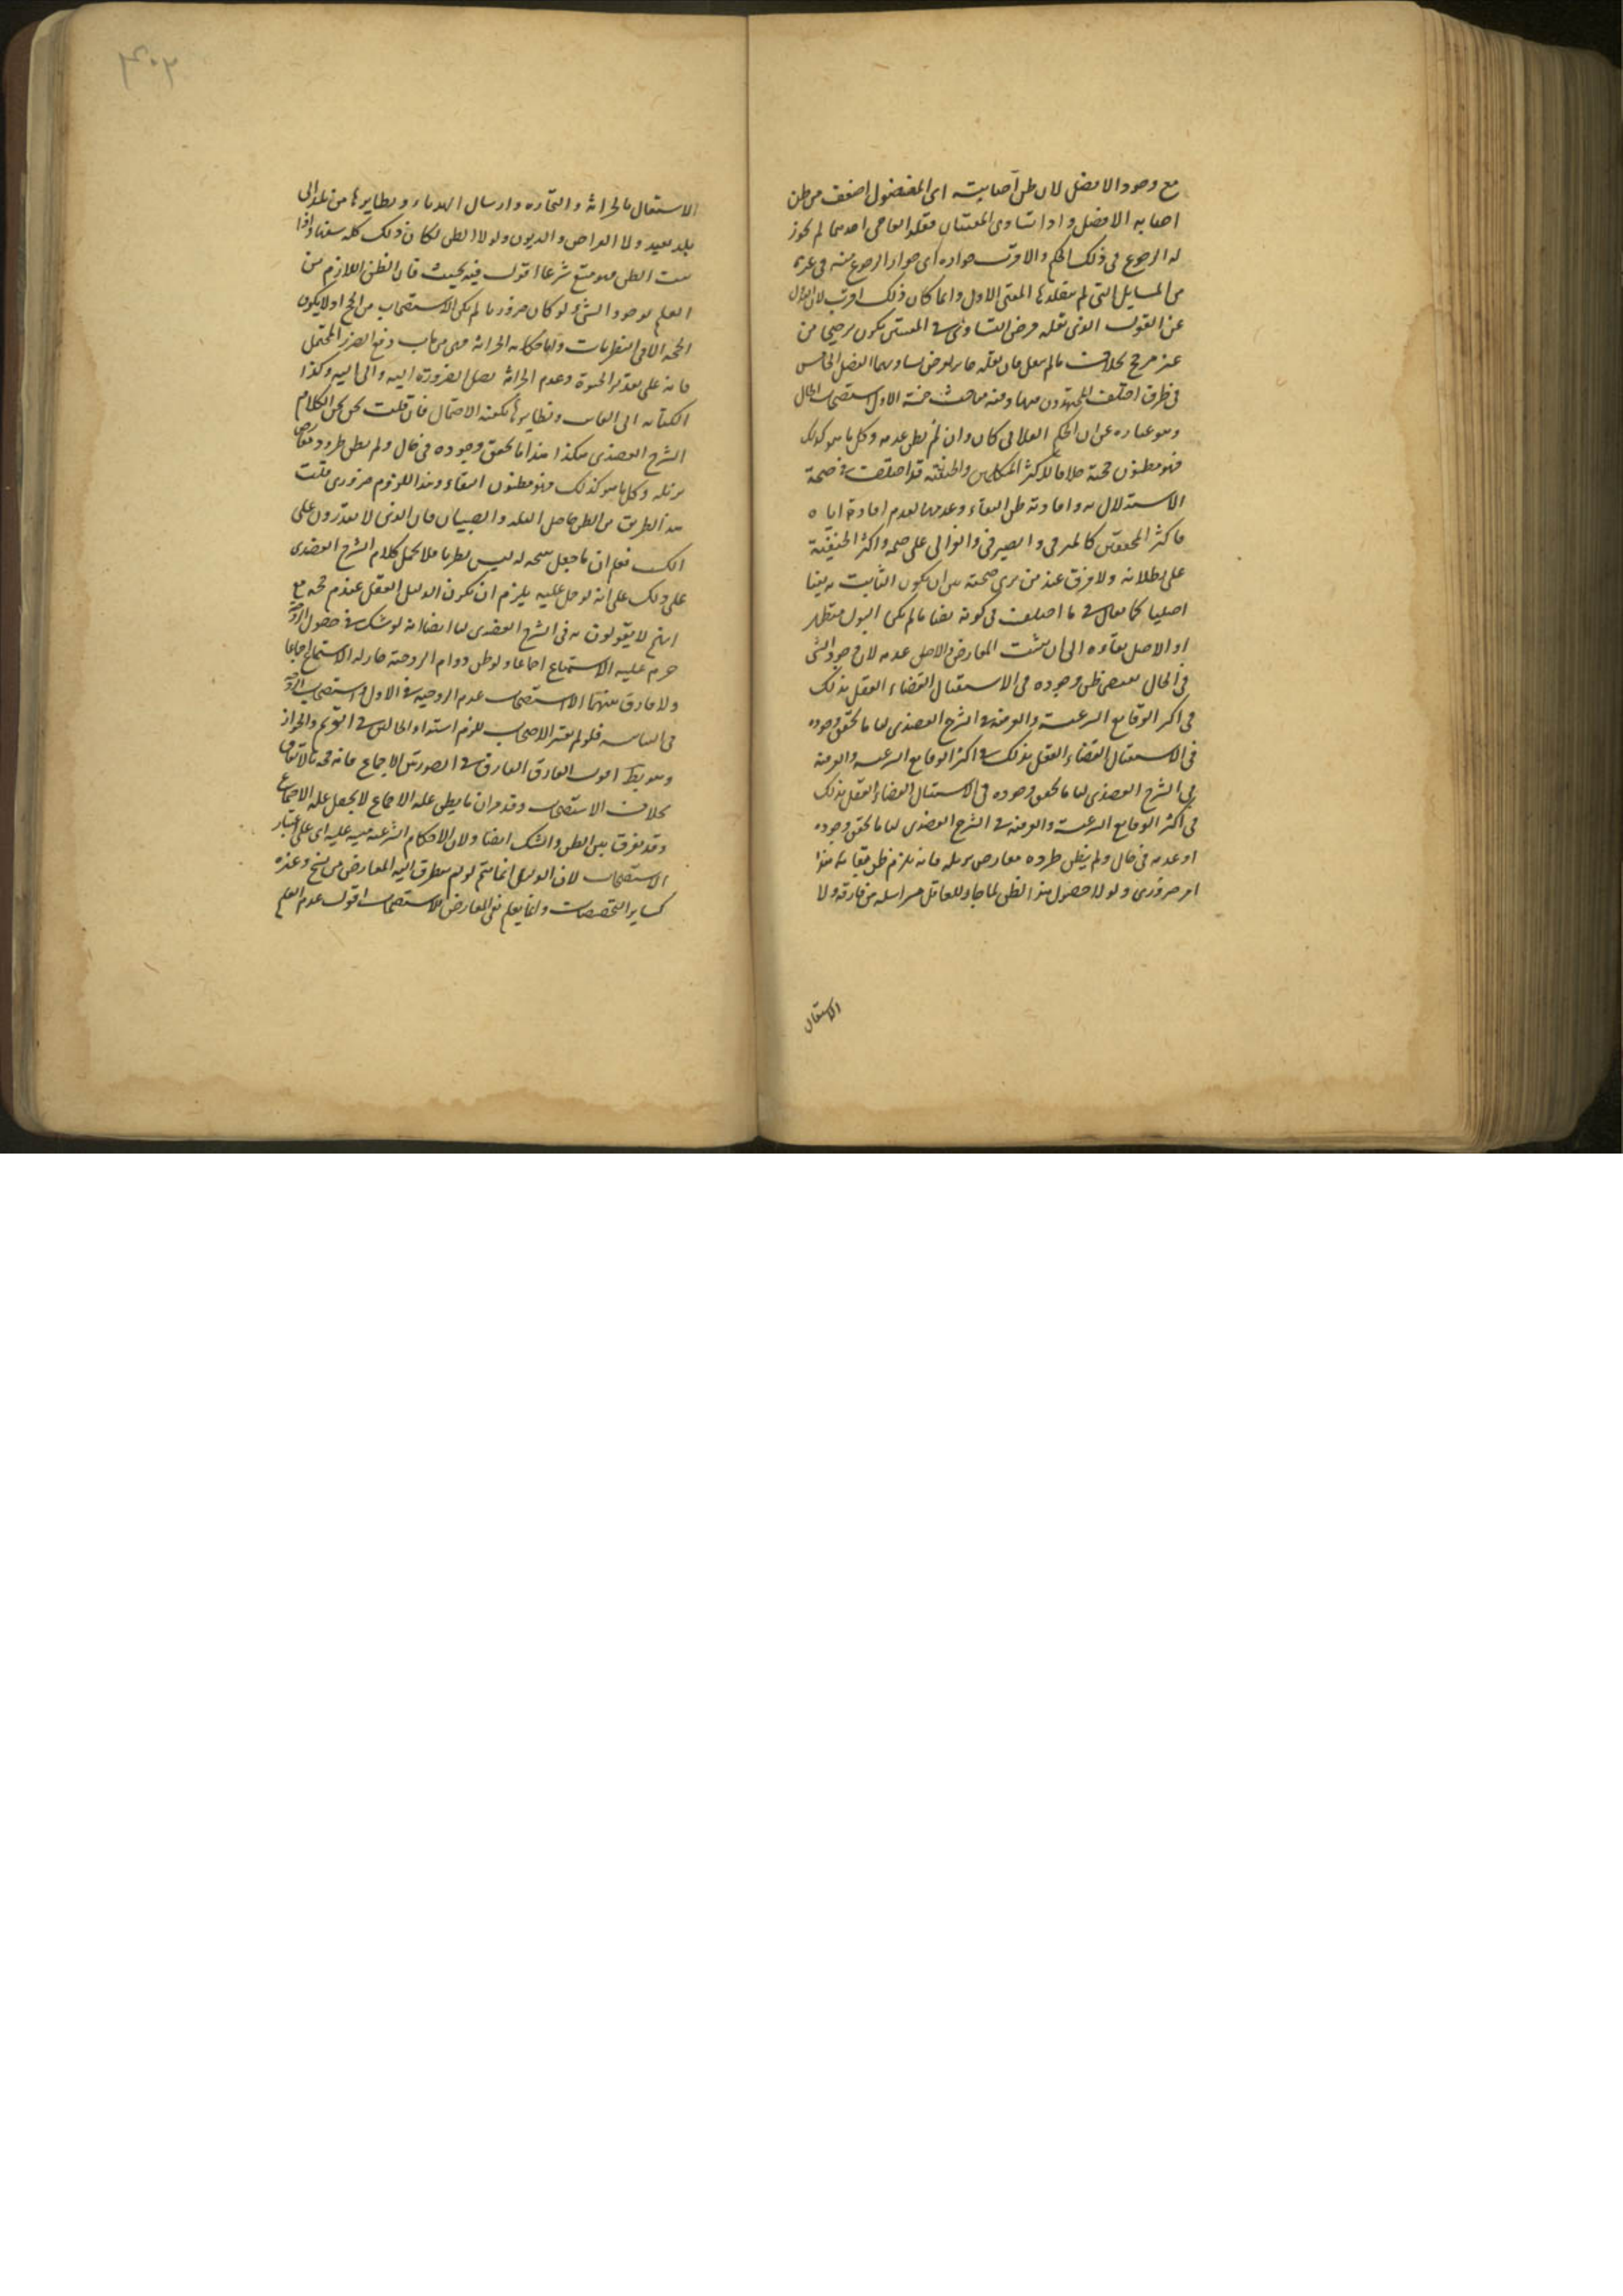 مع وجود الافضل لان ظن اصابته اى المفضول اضعف من ظن
اصابه الافضل و اذا تساوى المفتيان فقلد العامى احدهما لم يجوز
له الرجوع فى ذلك الحكم والاقرب جوازه اى جواز الرجوع عنه فى غيره
من المسايل التى لم يقلدها المفتى الاول وانما كان ذلك اقرب لان العدول
عن القول الذى نقله فرض التساوى فى المفتى يكون ترجيحا من
غير مرجح بخلاف مالم يعمل فان الفصل الخامس
فى طرق اختلف المجتهدون فيها وفيه مباحث خمسة الاول استصحاب الحال
وهو عباره عن ان الحكم الفلانى كان وان لم يظن عدمه وكل ما هو كذلك
فهو مظنون حجة خلافا لاكثر المتكلمين والحنفية قد اختلف فى صحة
الاستدلال به وافادته ظن البقاء وعدمها لعدم افادة اياه
فاكثر المحققين كالمزنى و الصيرفى والغزالى على صحه واكثر الحنفية
على بطلانه ولا فرق عند من يرى صحته بين ان يكون الثابت به نفيا
اصليا كما يقال فى ما اختلف فى كونه نصابا لم يكن
او الاصل بقاؤه الى ان يثبت المعارض والاصل عدمه لان وجود الشى
فى الحال يقتضى ظن وجوده فى الاستقبال لقضاء العقل بذلك
فى اكثر الوقايع الشرعية والعرفية فى الشرح العضدى لنا ما تحقق وجوده
فى الاستقبال لقضاء العقل بذلك فى اكثر الوقايع الشرعيه والعرفية
فى الشرح العضدى لنا ما تحقق وجوده فى الاستقبال لقضاء العقل بذلك
فى اكثر الوقايع الشرعية والعرفية فى الشرح العضدى لنا ما تحقق وجوده
او عدمه فى حال ولم يظن طروه معارض يزيله فانه يلزم ظن بقايه هذا
امر ضرورى ولولا حصول هذا الظن لما جاز للعاقل مراسله من فارقه ولا
الاشتغال
٤٠٢
الاشتغال بالحراثة و التجاره وارسال الهدايا ونظايرها من بلد الى
بلد بعيد ولا القراض و الديون ولولا الظن لكان ذلك كله سفها واذا
ثبت الظن فهو متبع شرعا اقول فيه بحيث فان الظن اللازم من
العلم بوجود الشى لو كان ضروريا لم يكن الاستصحاب من الحج اذ لا يكون
الحجه الا فى النظريات واما حكاية الحراثة فهى من باب دفع الضرر المحتمل
فانه على تقدير الحيوة وعدم الحراثة يصل الضرورة اليه والى اليه وكذا
الكتابه الى الغايب ونظايرها يكفيه الاحتمال فان قلت لكن الكلام
الشرح العضدى هكذا هذا ما تحقق وجوده فى حال ولم يظن طرو معارض
يزيله وكل ما هو كذلك فهو مظنون البقاء وهذا اللزوم ضرورى قلت
هذا الطريق من الظن حاصل البله و الصبيان فان الذى لا يقدرون على
الكسب فعلم ان ما جعل نتيجه له ليس نظريا فلا يحمل كلام الشرح العضدى
على ذلك على انه لو حمل عليه يلزم ان يكون الدليل العقل عندهم حجه مع
انهم لا يقولون به فى الشرح العضدى لنا ايضا انه لو شك فى حصول الزوجية
حرم عليه الاستمتاع اجماعا ولو ظن دوام الزوجية جاز له الاستمتاع اجماعا
ولا فارق بينهما الا استصحاب عدم الزوجيه فى الاول واستصحاب الزوجية
فى الثانيه فلو لم يعتبر الاستصحاب للزم استواء الحالين فى التحريم والجواز
وهو بط اقول الفارق الفارق فى الصورتين الاجماع فانه حجه بالاتفاق
بخلاف الاستصحاب وقد مر ان ما يظن علة الاجماع لا يجعل علة الاجماع
وقد يفرق بين الظن والشك ايضا ولان الاحكام الشرعيه مبنيه عليه اى على اعتبار
الاستصحاب لان الدليل انما يتم لو لم يتطرق اليه المعارض من نسخ وغيره
كساير المخصصات وانما يعلم نفى المعارض بالاستصحاب اقول عدم العلم